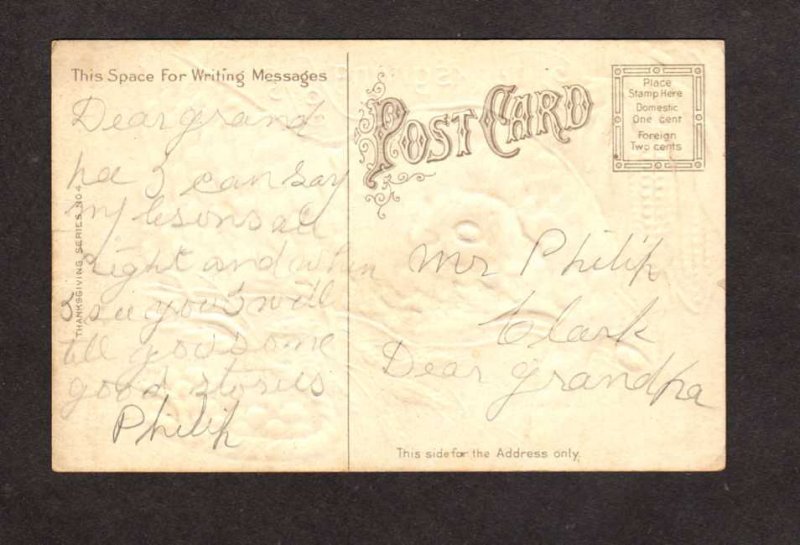 This Space For Writing Messages
Dear grand
pa I can say
my lesons all
right and when
I see you I will
till you some
good stories
Philip
THANKSGIVING SERIES NO 4
POST CARD
Place
Stamp Here
Domestic
One cent
Foreign
Two cents
Mr Philip
Clark
Dear grandpa
This side for the Address only.